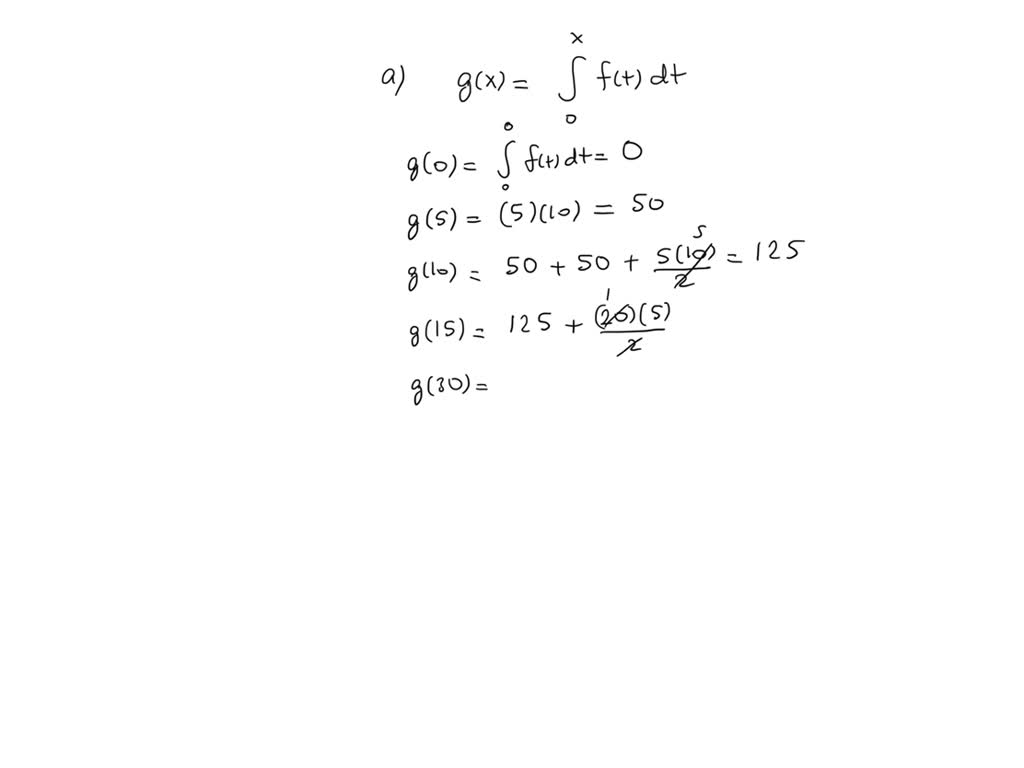 a) g(x) = ∫₀ˣ f(t) dt
g(0) = ∫₀⁰ f(t) dt = 0
g(5) = (5)(10) = 50
g(10) = 50 + 50 + 5(10)/2 5 = 125
g(15) = 125 + (20)(5)/2 1
g(30) =